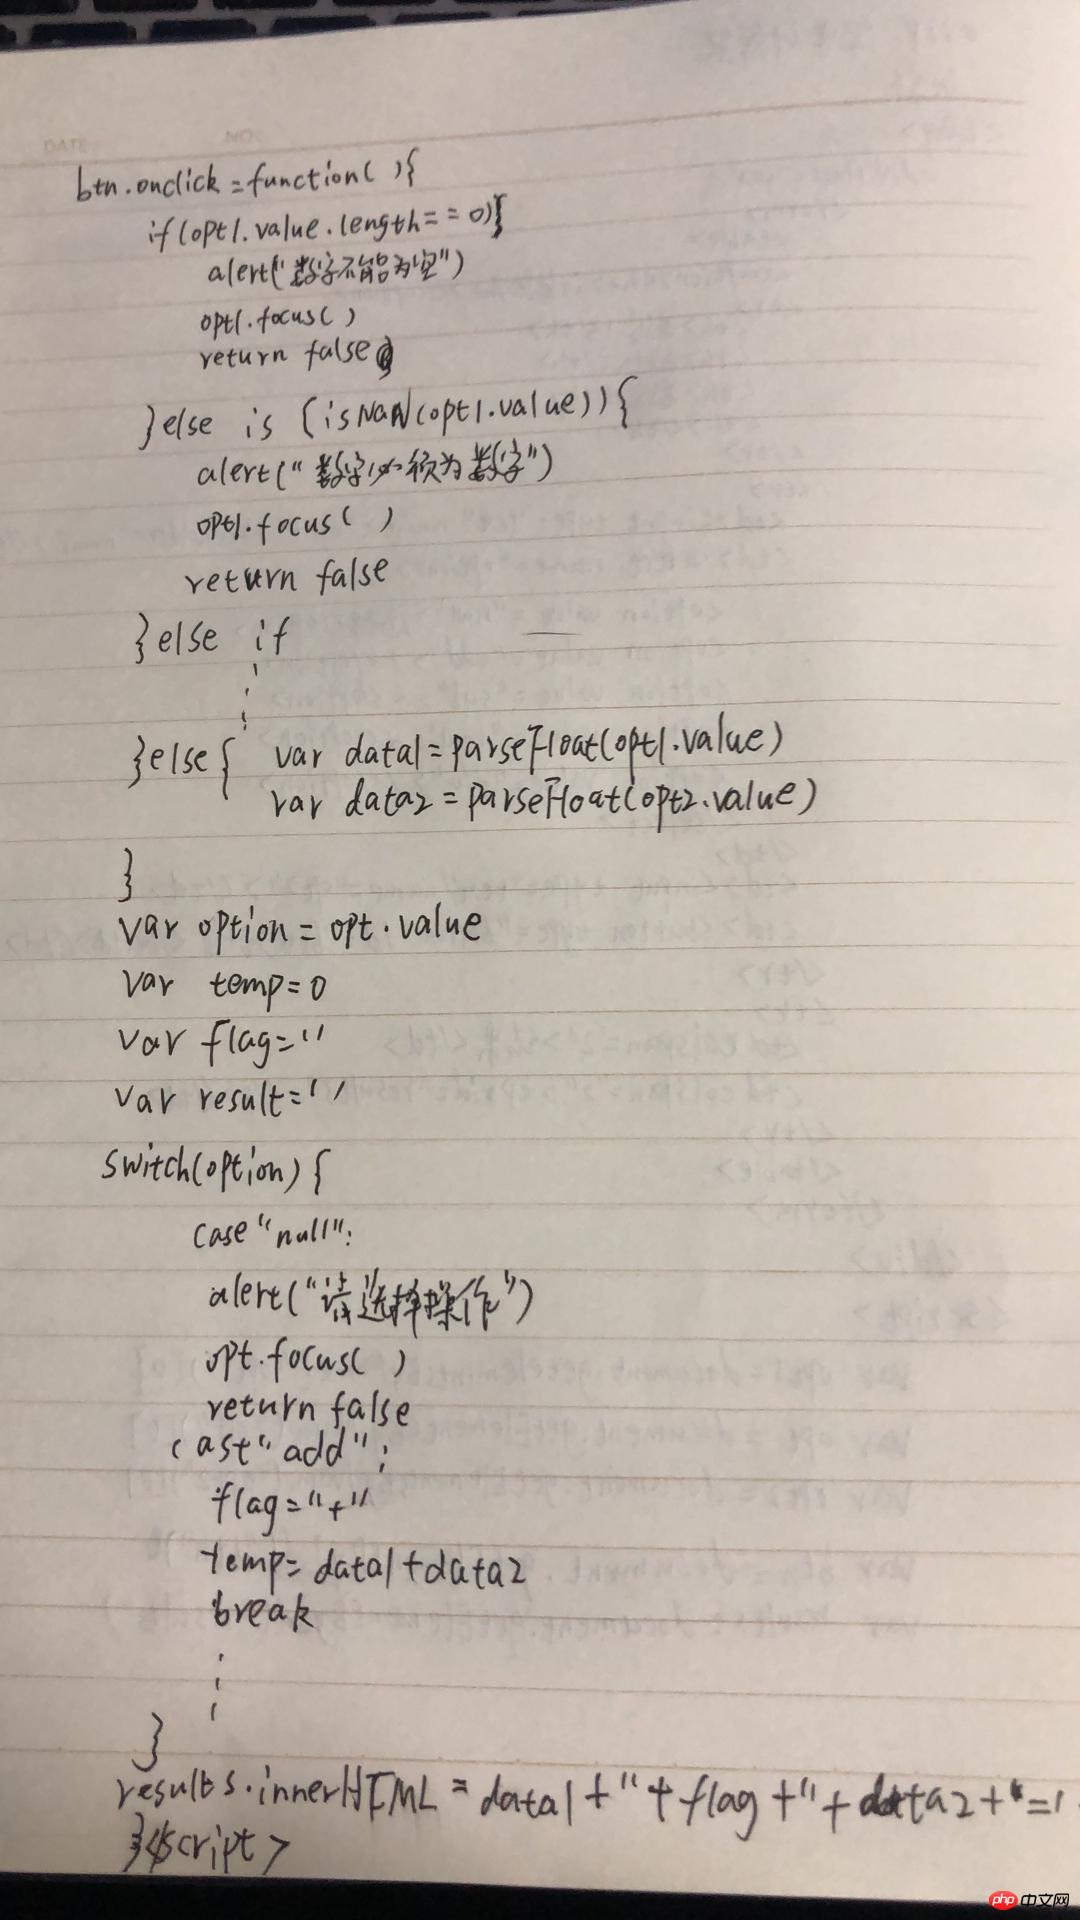 DATE NO
btn.onclick=function( ){
if(opt1.value.length==0){
alert("数字不能为空")
opt1.focus( )
return false
}else is (isNaN(opt1.value)){
alert("数字必须为数字")
opt1.focus( )
return false
}else if
}else{ var data1=parseFloat(opt1.value)
var data2=parseFloat(opt2.value)
}
var option=opt.value
var temp=0
var flag=''
var result=''
switch(option){
case"null":
alert("请选择操作")
opt.focus( )
return false
cast"add":
flag="+"
temp=data1+data2
break
}
results.innerHTML=data1+''+flag+''+data2+'='
}</script>
php 中文网